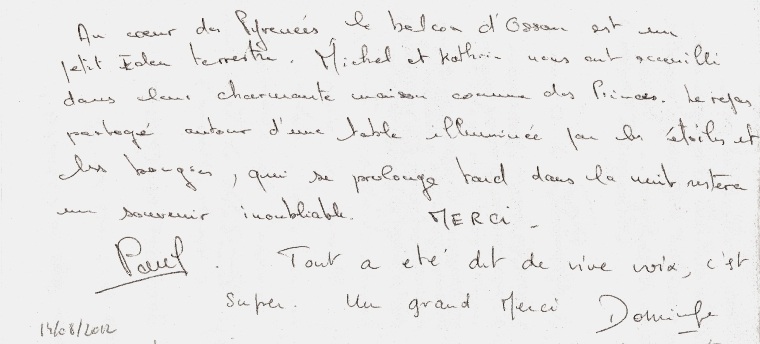 Au coeur des Pyrenées, le balcon d'Ossau est un
petit Eden terrestre. Michel et Kathrin nous ont accueilli
dans leur charmante maison comme des Princes. Le repas
partagé autour d'une table illuminée par les étoiles et
les bougies, qui se prolonge tard dans la nuit restera
un souvenir inoubliable. MERCi -
Paul. Tout a eté dit de vive voix, c'est
super. Un grand Merci Dominique
14/08/2012